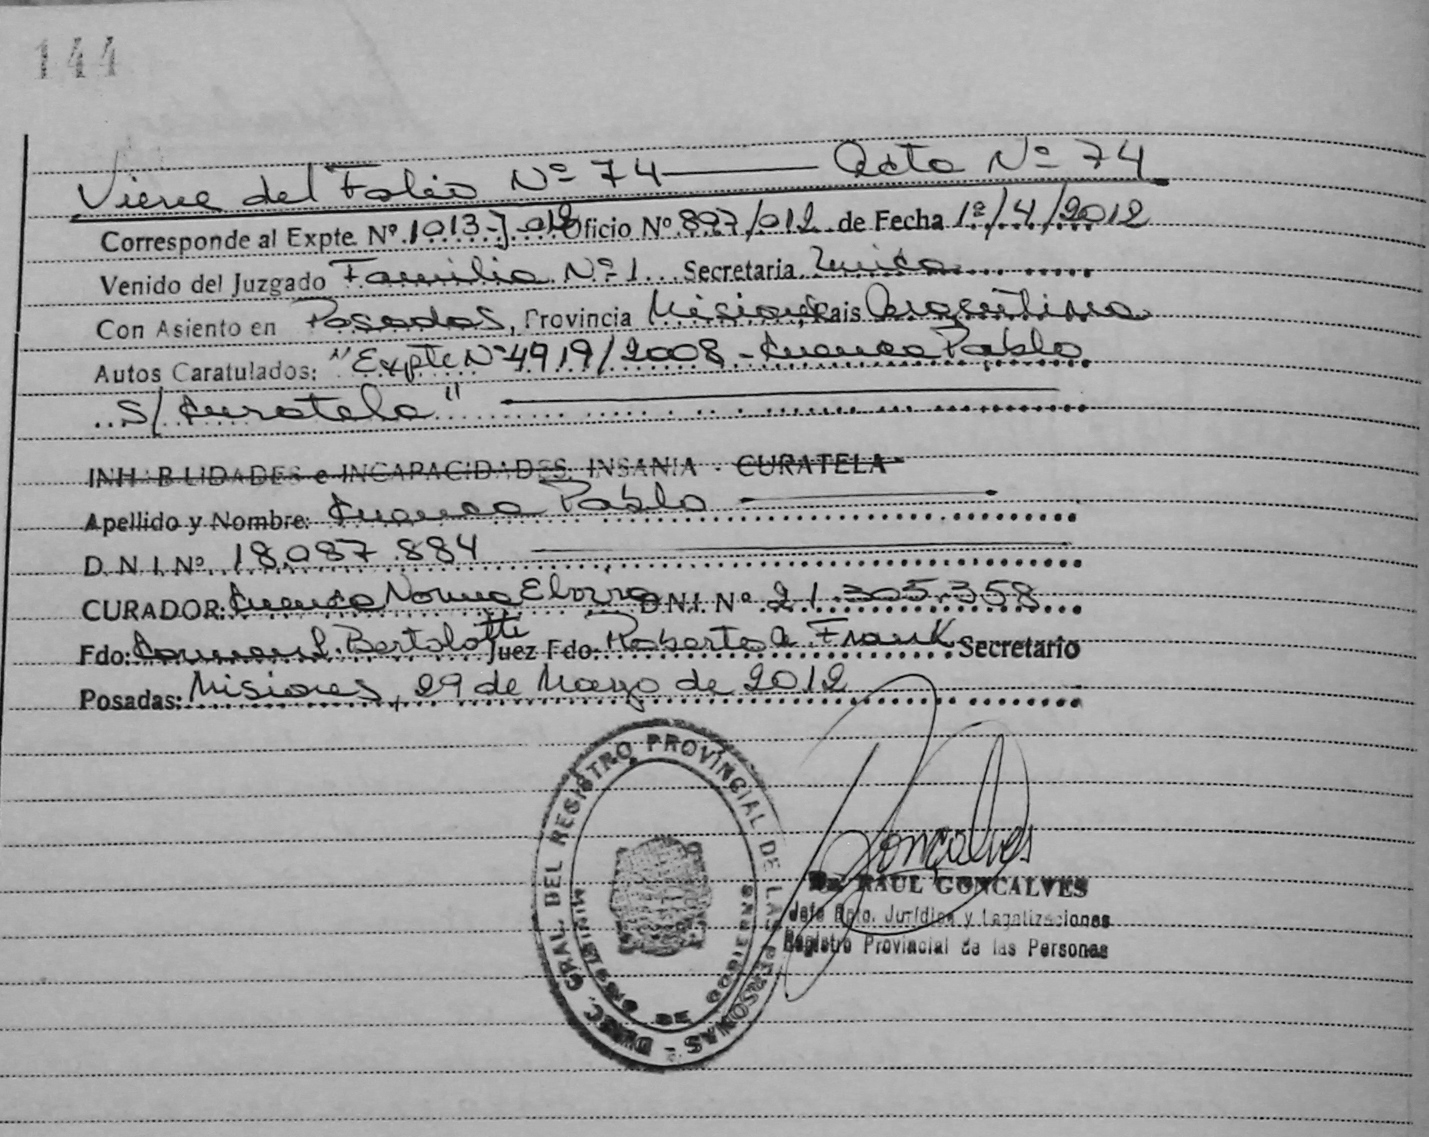 144
Viene del Folio Nº 74 — Acta Nº 74
Corresponde al Expte Nº 1013-J-012 Oficio Nº 897/012 de Fecha 1º/4/2012
Venido del Juzgado Familia Nº 1 Secretaria Unica
Con Asiento en Posadas, Provincia Misiones, Pais Argentina
Autos Caratulados: "Expte Nº 4919/2008 - Cuenca Pablo
S/ Curatela"
INHABILIDADES e INCAPACIDADES. INSANIA - CURATELA
Apellido y Nombre: Cuenca Pablo
D.N.I. Nº 18.087.884
CURADOR: Cuenca Norma D.N.I. Nº 21.305.358
Fdo: L. Bertolotti Juez Fdo: Roberto A. Frank Secretario
Posadas: Misiones, 29 de Marzo de 2012
DIREC. GRAL. DEL REGISTRO PROVINCIAL DE LAS PERSONAS -
MINISTERIO DE GOBIERNO
Goncalves
Dr. RAUL GONCALVES
Jefe Dpto. Jurídico y Legalizaciones
Registro Provincial de las Personas